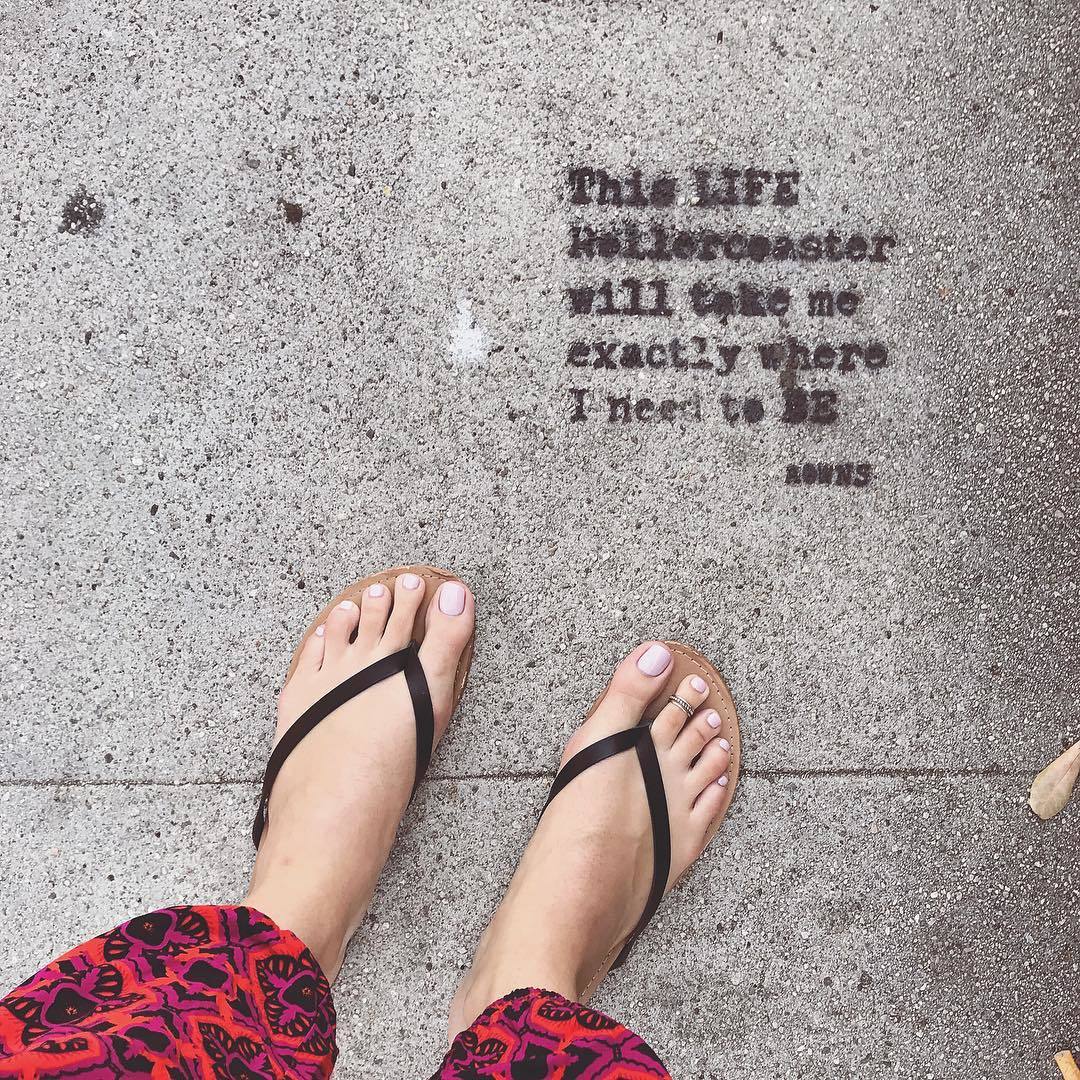 This LIFE
Rollercoaster
will take me
exactly where
I need to BE
AOWNS